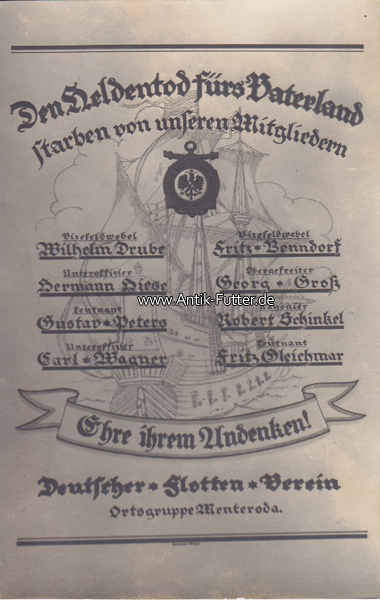 Den Heldentod fürs Vaterland
starben von unseren Mitgliedern
Vizefeldwebel
Wilhelm Drube
Unteroffizier
Hermann Giese
Leutnant
Gustav * Peters
Unteroffizier
Carl * Wagner
Vizefeldwebel
Fritz * Benndorf
Obergefreiter
Georg * Groß
Kanonier
Robert Schinkel
Leutnant
Fritz Gleichmar
www.Antik-Futter.de
Ehre ihrem Andenken!
Deutscher * Flotten * Verein
Ortsgruppe Menteroda.